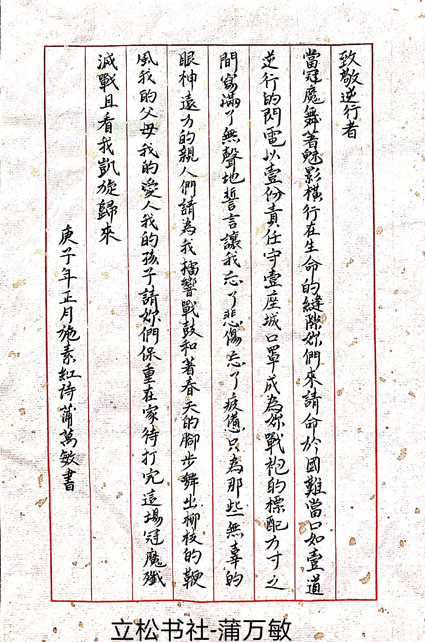 致敬逆行者
當冠魔舞著魅影橫行在生命的縫隙妳們來請命於國難當口如壹道
逆行的閃電以壹份責任守壹座城口罩成為你戰袍的標配方寸之
間寫滿了無聲地誓言讓我忘了悲傷忘了疲憊只為那些無辜的
眼神遠方的親人們請為我擂響戰鼓和著春天的腳步舞出柳枝的鞭
風我的父母我的愛人我的孩子請妳們保重在家待打完這場冠魔殲
滅戰且看我凱旋歸來
庚子年正月施素紅詩蒲萬敏書
立松书社-蒲万敏